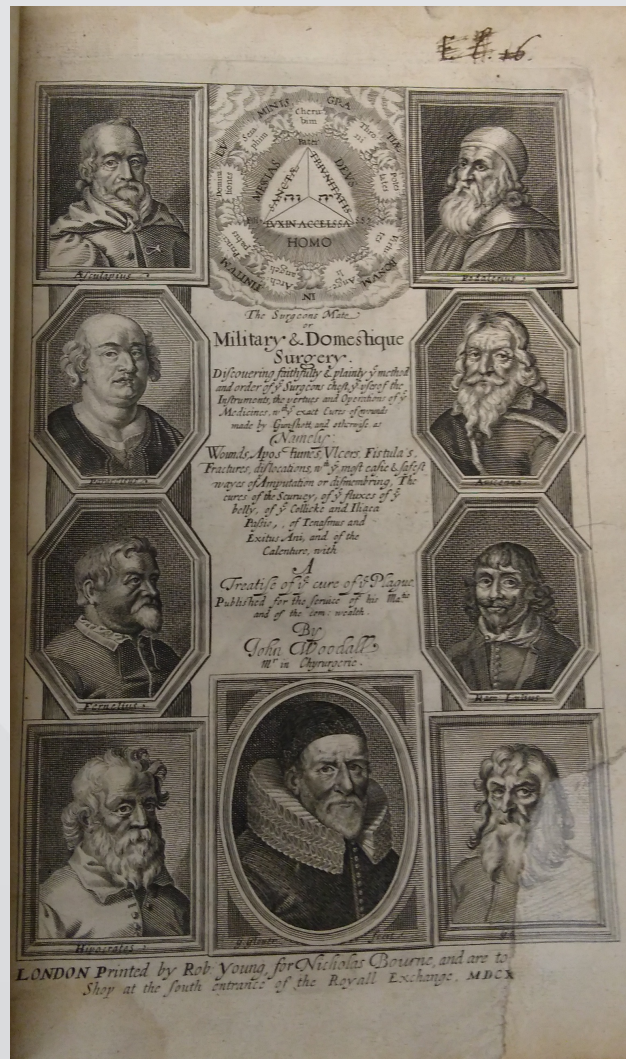 Æsculapius.
LV MINIS GRA TIÆ
Cheru bim
Sera phim
Thro ni
Domini tiones
Potes tates
Pater
MESIAS DEVS
SANCTÆ TRIVNITATIS
יהוה
IN LVX IN ACCELSSA
HOMO
Princi patus
Virtu tes
Arch angeli
Ange li
INITIVM
BONVM
IN
The Surgeons Mate
or
Military & Domestique
Surgery.
Discouering faithfully & plainly yͤ method
and order of yͤ Surgeons chest, yͤ vses of the
Instruments, the vertues and Operations of yͤ
Medicines, wᵗʰ yͤ exact Cures of wounds
made by Gunshott, and otherwise as
Namely:
Wounds, Apostumes, Vlcers, Fistula's,
Fractures, dislocations, wᵗʰ yͤ most easie & safest
wayes of Amputation or dismembring. The
cures of the Scuruey, of yͤ fluxes of yͤ
belly, of yͤ Collicke and Iliaca
Passio, of Tenasmus and
Exitus Ani, and of the
Calenture, with
A
Treatise of yͤ cure of yͤ Plague.
Published for the seruice of his Maᵗⁱᵉ
and of the com: wealth.
By
John Woodall
Mʳ in Chyrurgerie.
Auicenna.
Fernelius.
Ray: Lullius
Hipocrates.
G. Glouer fecit
LONDON Printed by Rob: Young, for Nicholas Bourne, and are to
Shop at the south entrance of the Royall Exchange, MDCX